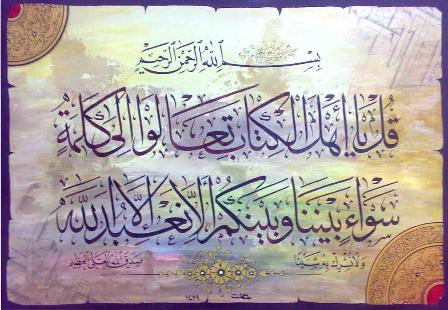 بسم الله الرحمن الرحيم
قل يا أهل الكتاب تعالوا إلى كلمة
سواء بيننا وبينكم ألا نعبد إلا الله
ولا نشرك به شيئا صدق الله العلي العظيم
١٤٢٩